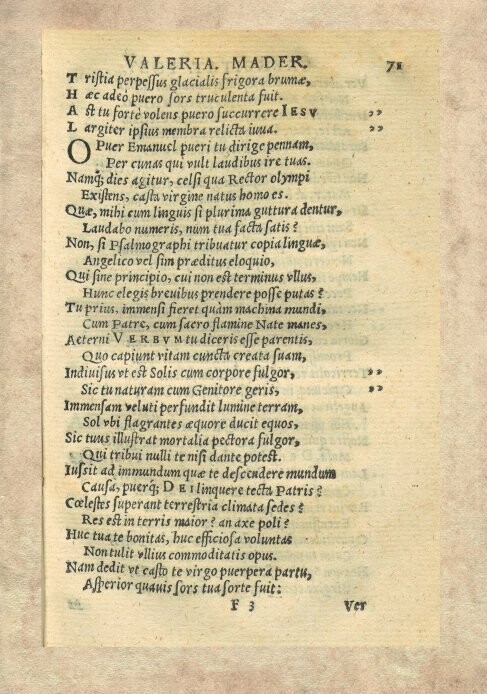 VALERIA. MADER. 71
Tristia perpessus glacialis frigora brumæ,
Hæc adeò puero sors truculenta fuit.
Ast tu fortè volens puero succurrere IESV ,,
Largiter ipsius membra relicta iuua. ,,
O Puer Emanuel pueri tu dirige pennam,
Per cunas qui vult laudibus ire tuas.
Namq; dies agitur, celsi qua Rector olympi
Existens, casta virgine natus homo es.
Quæ, mihi cum linguis si plurima guttura dentur,
Laudabo numeris, num tua facta satis?
Non, si Psalmographi tribuatur copia linguæ,
Angelico vel sim præditus eloquio,
Qui sine principio, cui non est terminus vllus,
Hunc elegis breuibus prendere posse putas?
Tu prius, immensi fieret quàm machina mundi,
Cum Patre, cum sacro flamine Nate manes,
Aeterni VERBVM tu diceris esse parentis,
Quo capiunt vitam cuncta creata suam,
Indiuisus vt est Solis cum corpore fulgor, ,,
Sic tu naturam cum Genitore geris, ,,
Immensam veluti perfundit lumine terram,
Sol vbi flagrantes æquore ducit equos,
Sic tuus illustrat mortalia pectora fulgor,
Qui tribui nulli te nisi dante potest.
Iussit ad immundum quæ te descendere mundum
Causa, puerq; DEI linquere tecta Patris?
Cœlestes superant terrestria climata sedes?
Res est in terris maior? an axe poli?
Huc tua te bonitas, huc efficiosa voluntas
Non tulit vllius commoditatis opus.
Nam dedit vt casto te virgo puerpera partu,
Asperior quauis sors tua sorte fuit:
F 3 Ver